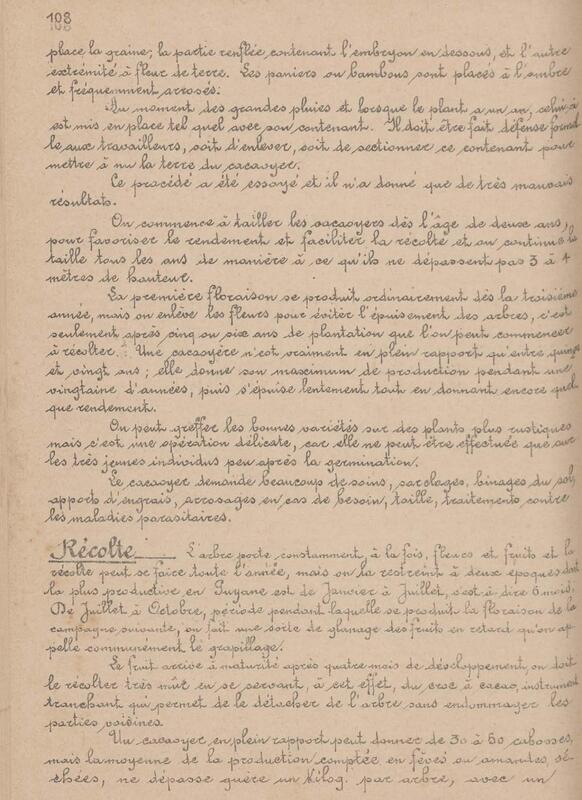 108
place la graine; la partie renflée, contenant l'embryon en dessous, et l'autre
extrémité à fleur de terre. Les paniers ou bambous sont placés à l'ombre
et fréquemment arrosés.
Au moment des grandes pluies et lorsque le plant a un an, celui-ci
est mis en place tel quel avec son contenant. Il doit être fait défense formel
le aux travailleurs, soit d'enlever, soit de sectionner ce contenant pour
mettre à nu la terre du cacaoyer.
Ce procédé a été essayé et il n'a donné que de très mauvais
résultats.
On commence à tailler les cacaoyers dès l'âge de deux ans,
pour favoriser le rendement et faciliter la récolte et on continue la
taille tous les ans de manière à ce qu'ils ne dépassent pas 3 à 4
mètres de hauteur.
La première floraison se produit ordinairement dès la troisième
année, mais on enlève les fleurs pour éviter l'épuisement des arbres, c'est
seulement après cinq ou six ans de plantation que l'on peut commencer
à récolter. Une cacaoyère n'est vraiment en plein rapport qu'entre quinze
et vingt ans; elle donne son maximum de production pendant une
vingtaine d'années, puis s'épuise lentement tout en donnant encore quel
que rendement.
On peut greffer les bonnes variétés sur des plants plus rustiques
mais c'est une opération délicate, car elle ne peut être effectuée que sur
les très jeunes individus peu après la germination.
Le cacaoyer demande beaucoup de soins, sarclages, binages du sol,
apports d'engrais, arrosages en cas de besoin, taille, traitements contre
les maladies parasitaires.
Récolte L'arbre porte constamment, à la fois, fleurs et fruits et la
récolte peut se faire toute l'année, mais on la restreint à deux époques dont
la plus productive en Guyane est de Janvier à Juillet, c'est à dire 6 mois.
De Juillet à Octobre, période pendant laquelle se produit la floraison de la
campagne suivante, on fait une sorte de glanage des fruits en retard qu'on ap
pelle communément le grapillage.
Le fruit arrive à maturité après quatre mois de développement, on doit
le récolter très mûr en se servant, à cet effet, du croc à cacao, instrument
tranchant qui permet de le détacher de l'arbre sans endommager les
parties voisines.
Un cacaoyer en plein rapport peut donner de 30 à 60 cabosses,
mais la moyenne de la production comptée en fèves ou amandes, sé-
chées, ne dépasse guère un Kilog. par arbre, avec un